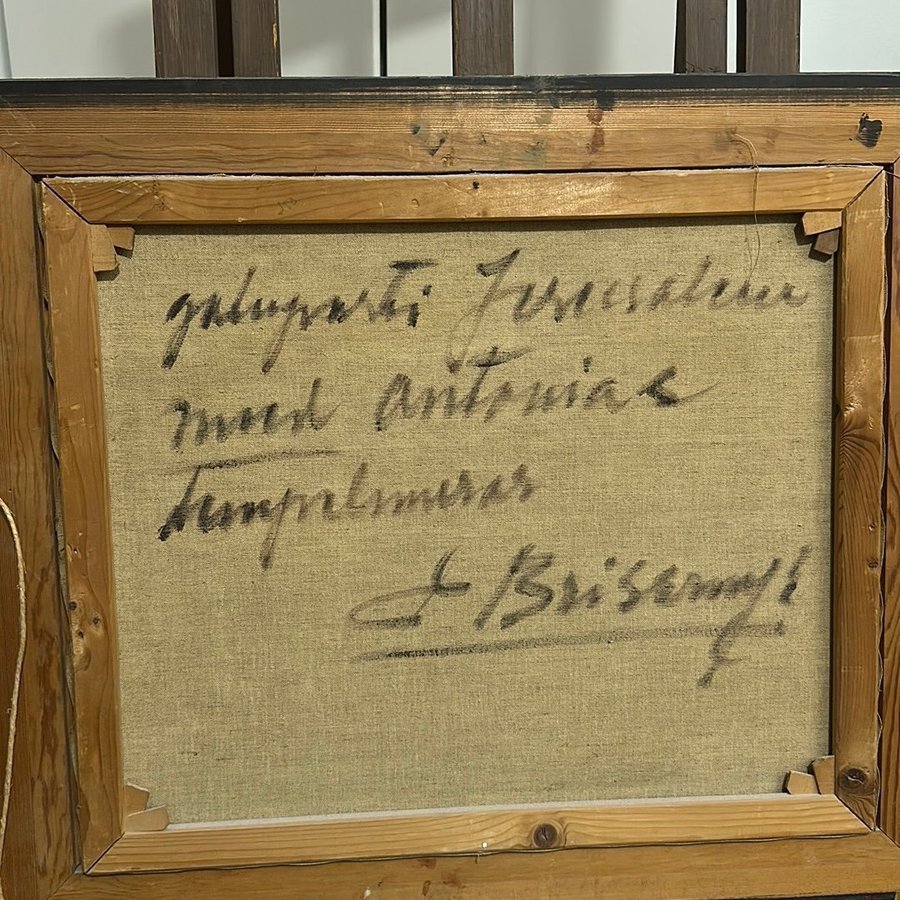 gatuparti Jerusalem
med Antonias
tempelmurar
J Briserny